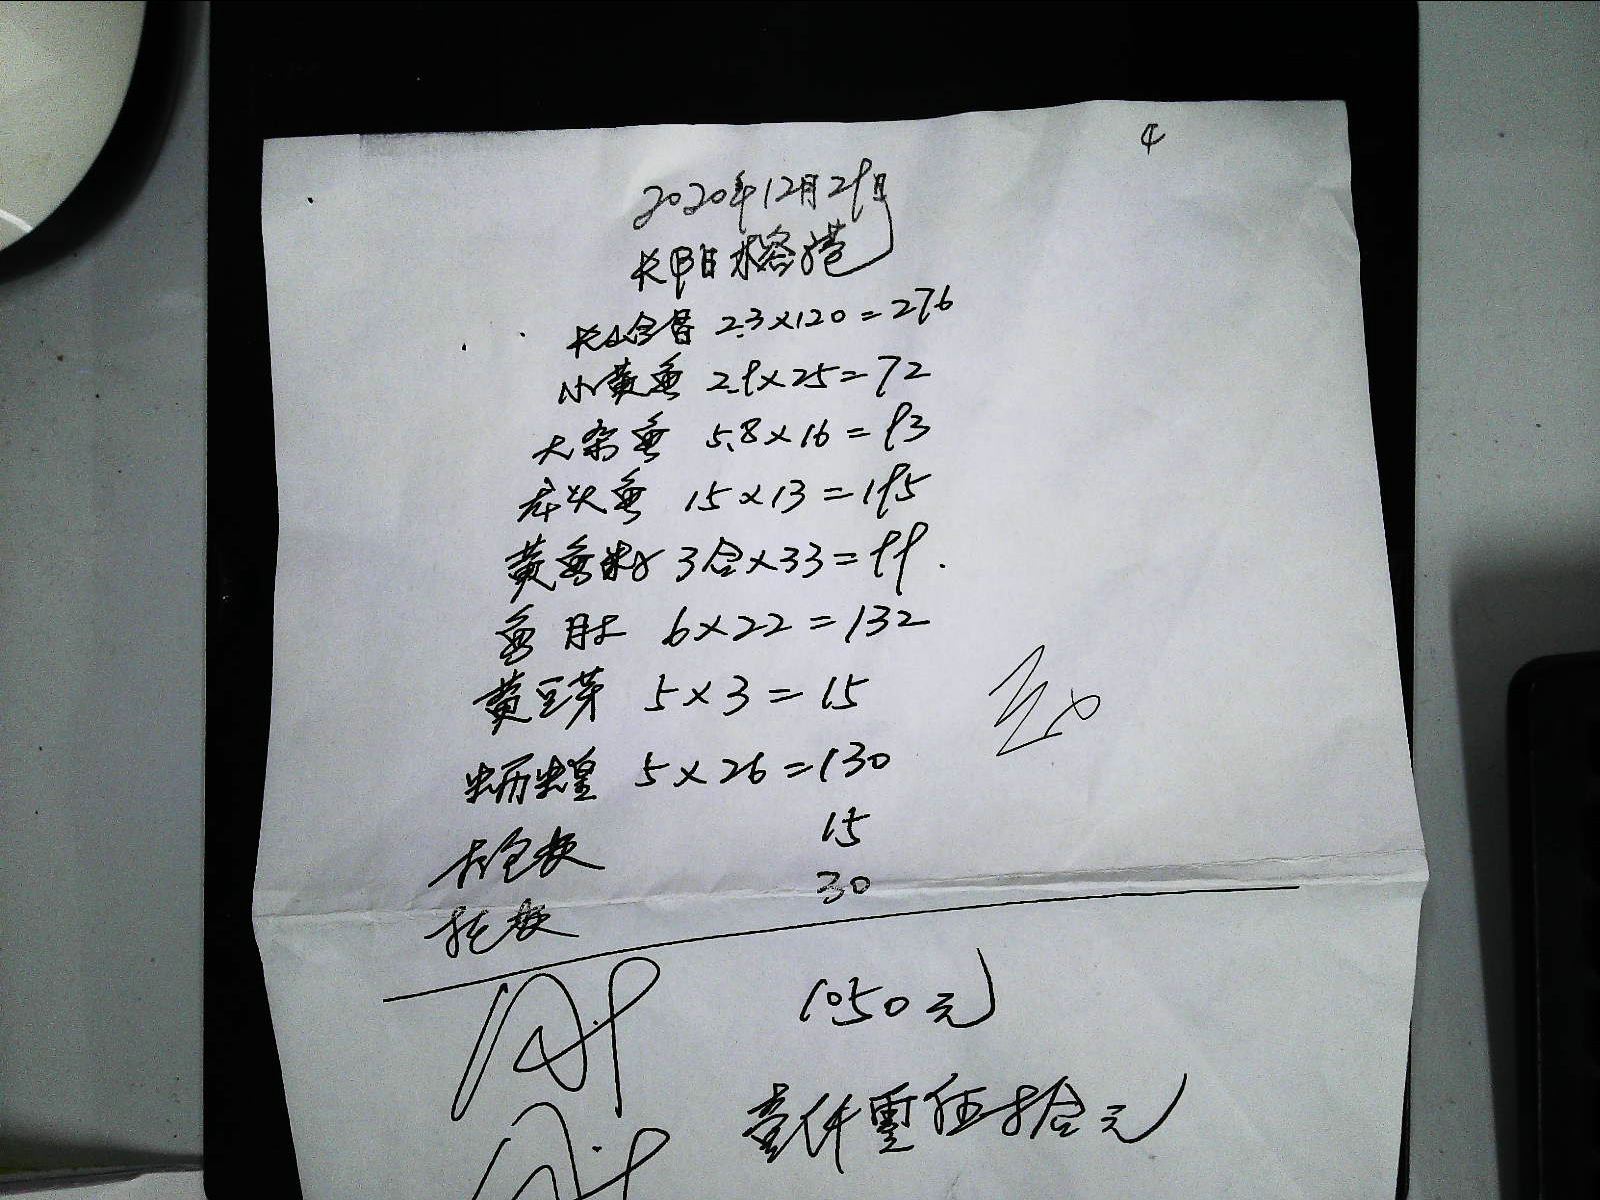 2020年12月29日
长阳水容港
2.3×120=276
小黄鱼 2.9×25=72
大杂鱼 5.8×16=93
头鱼 15×13=195
黄鱼 3合×33=99
鱼肚 6×22=132
黄豆芽 5×3=15
5×26=130
15
30
1050元
壹仟零伍拾元